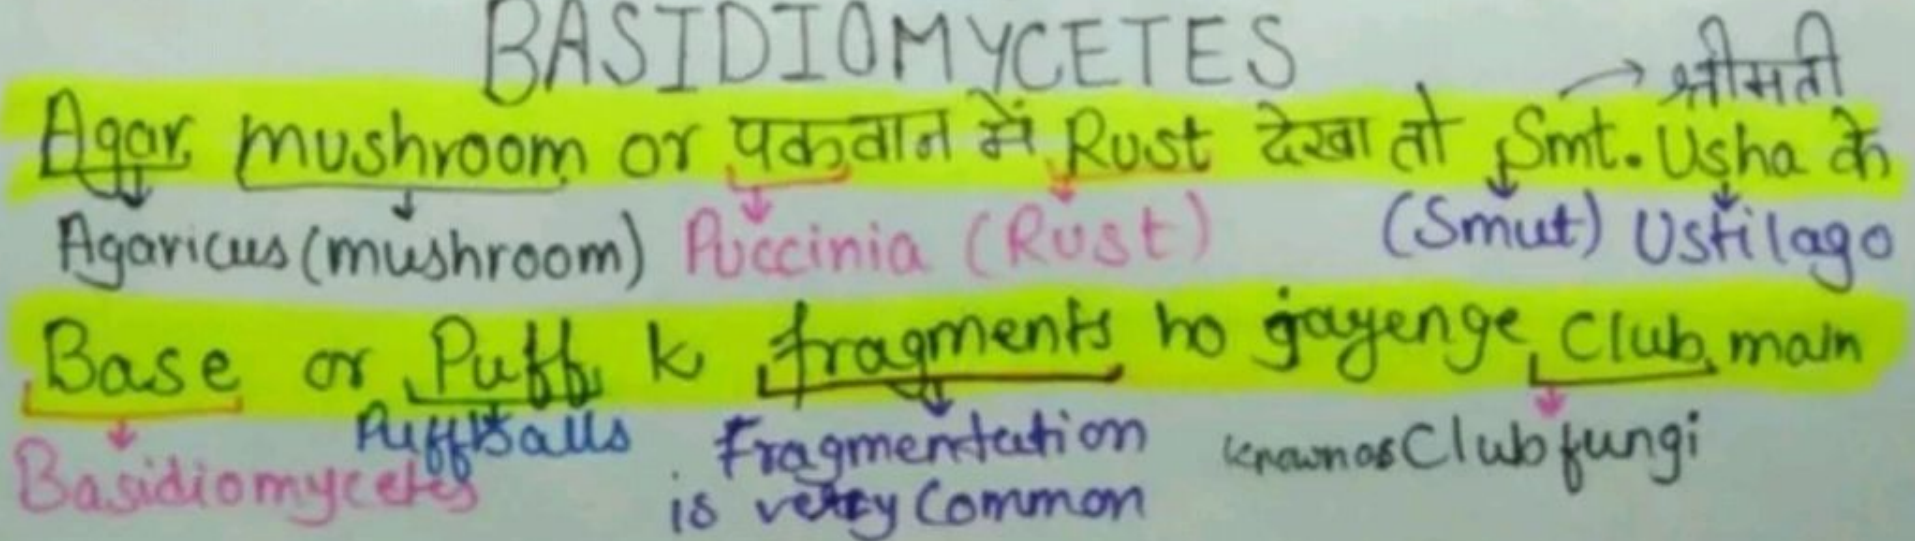 BASIDIOMYCETES
→ श्रीमती
Agar mushroom or पकवान में Rust देखा तो Smt. Usha के
Agaricus (mushroom) Puccinia (Rust) (Smut) Ustilago
Base or Puff k fragments ho jayenge Club main
Basidiomycetes PuffBalls Fragmentation known as Club fungi
is very Common